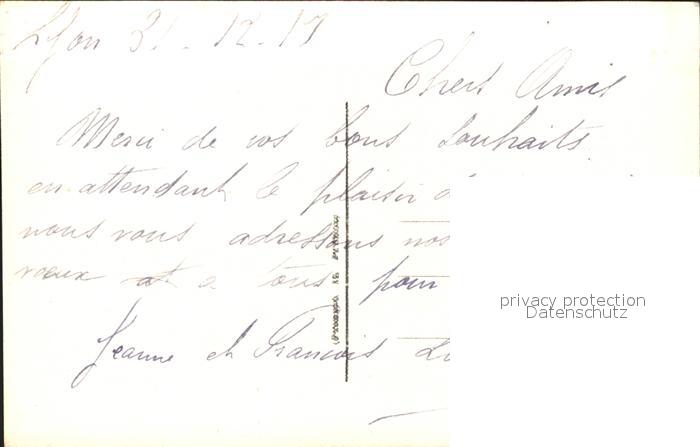 Lyon 31-12-17
Chers Amis
Merci de vos bons souhaits
en attendant le plaisir d
nous vous adressons nos
vœux et a tous pour
Jeanne et François
privacy protection
Datenschutz